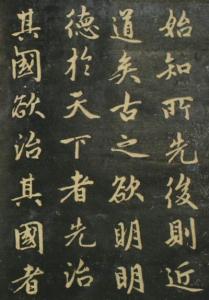 始知所先後則近
道矣古之欲明明
德於天下者先治
其國欲治其國者